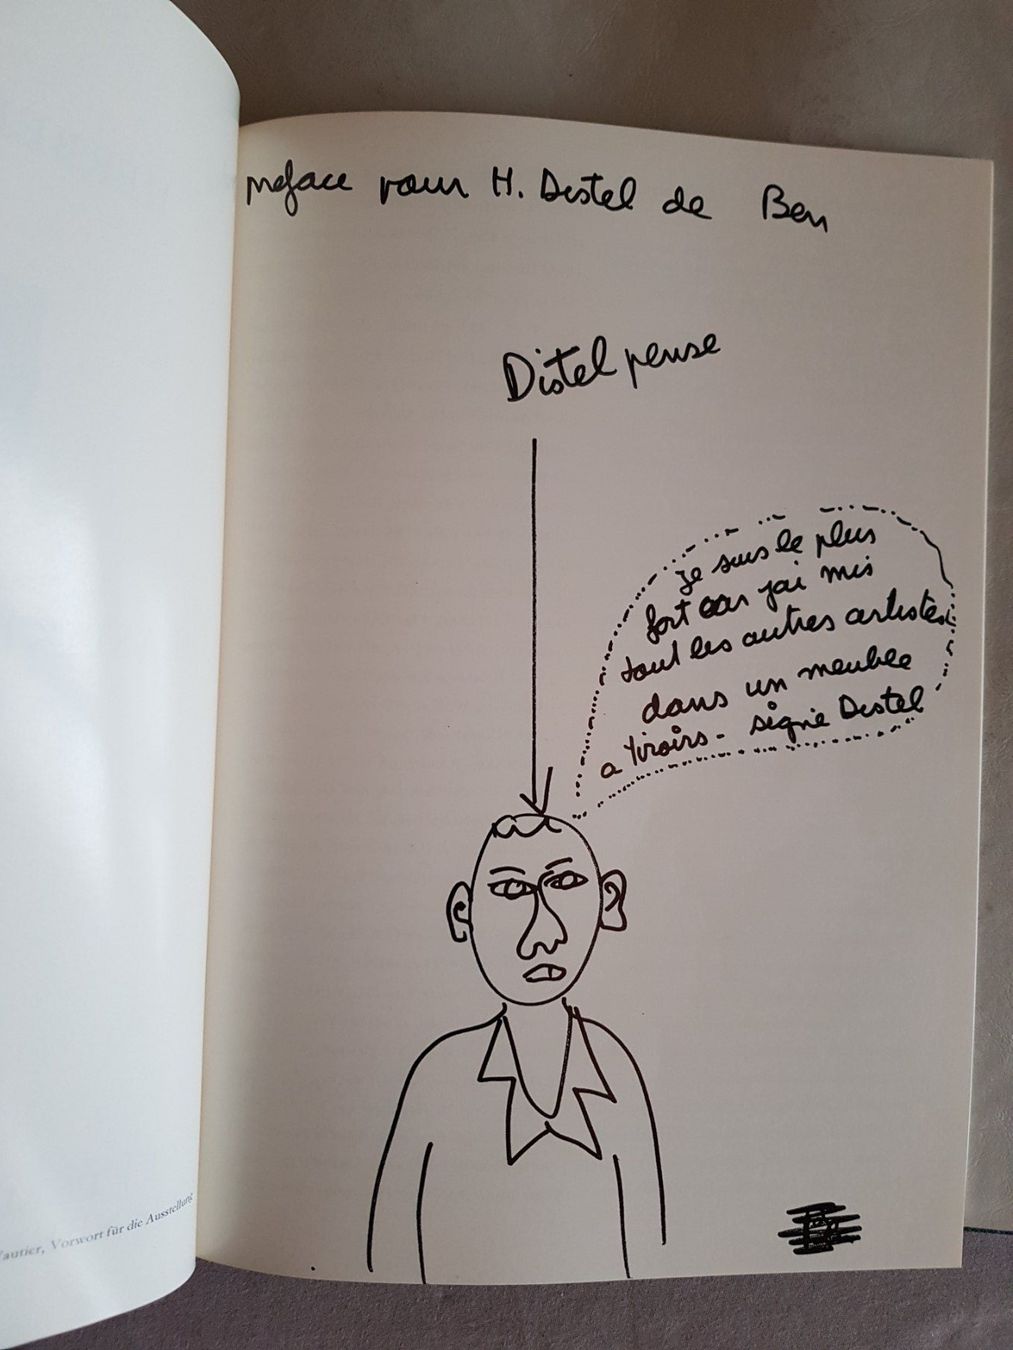 preface pour H. Distel de Ben
Distel pense
je suis le plus
fort car j'ai mis
tout les autres artistes
dans un meuble
a tiroirs - signé Distel
autier, Vorwort für die Ausstellung